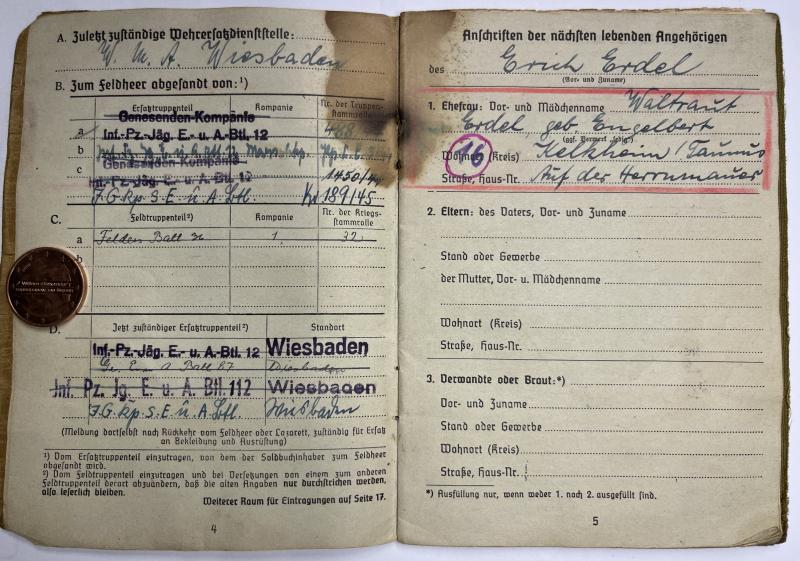 A. Zuletzt zuständige Wehrersatzdienststelle:
W. M. A. Wiesbaden
B. Zum Feldheer abgesandt von:¹)
Ersatztruppenteil Kompanie Nr. der Truppenstammrolle
Genesenden-Kompanie
a Inf.-Pz.-Jäg. E.- u. A.-Btl. 12 468
b
Genesenden-Kompanie
c 1450/44
Inf.-Pz.-Jäg. E.- u. A.-Btl. 12
J.G.Kp. S.E. u. A. Btl. 189/45
C. Feldtruppenteil²) Kompanie Nr. der Kriegsstammrolle
a Felders. Batl. 36 1. 32
b
c
D. Jetzt zuständiger Ersatztruppenteil²) Standort
Inf.-Pz.-Jäg. E.- u. A.-Btl. 12 Wiesbaden
Gr. E. u. A Batl 87 Wiesbaden
Inf. Pz. Jg. E. u. A. Btl. 112 Wiesbaden
J.G.Kp. S.E. u. A. Btl. Wiesbaden
(Meldung dortselbst nach Rückkehr vom Feldheer oder Lazarett, zuständig für Ersatz
an Bekleidung und Ausrüstung)
¹) Vom Ersatztruppenteil einzutragen, von dem der Soldbuchinhaber zum Feldheer
abgesandt wird.
²) Vom Feldtruppenteil einzutragen und bei Versetzungen von einem zum anderen
Feldtruppenteil derart abzuändern, daß die alten Angaben nur durchstrichen werden,
also leserlich bleiben.
Weiterer Raum für Eintragungen auf Seite 17.
4
Anschriften der nächsten lebenden Angehörigen
des Erich Erdel
(Vor- und Zuname)
1. Ehefrau: Vor- und Mädchenname Waltraut
Erdel geb Engelbert
(ggf. Vermerk „ledig“)
Wohnort (Kreis) Kelkheim / Taunus
16
Straße, Haus-Nr. Auf der Herrnmauer
2. Eltern: des Vaters, Vor- und Zuname
Stand oder Gewerbe
der Mutter, Vor- u. Mädchenname
Wohnort (Kreis)
Straße, Haus-Nr.
3. Verwandte oder Braut:*)
Vor- und Zuname
Stand oder Gewerbe
Wohnort (Kreis)
Straße, Haus-Nr.
*) Ausfüllung nur, wenn weder 1. noch 2. ausgefüllt sind.
5